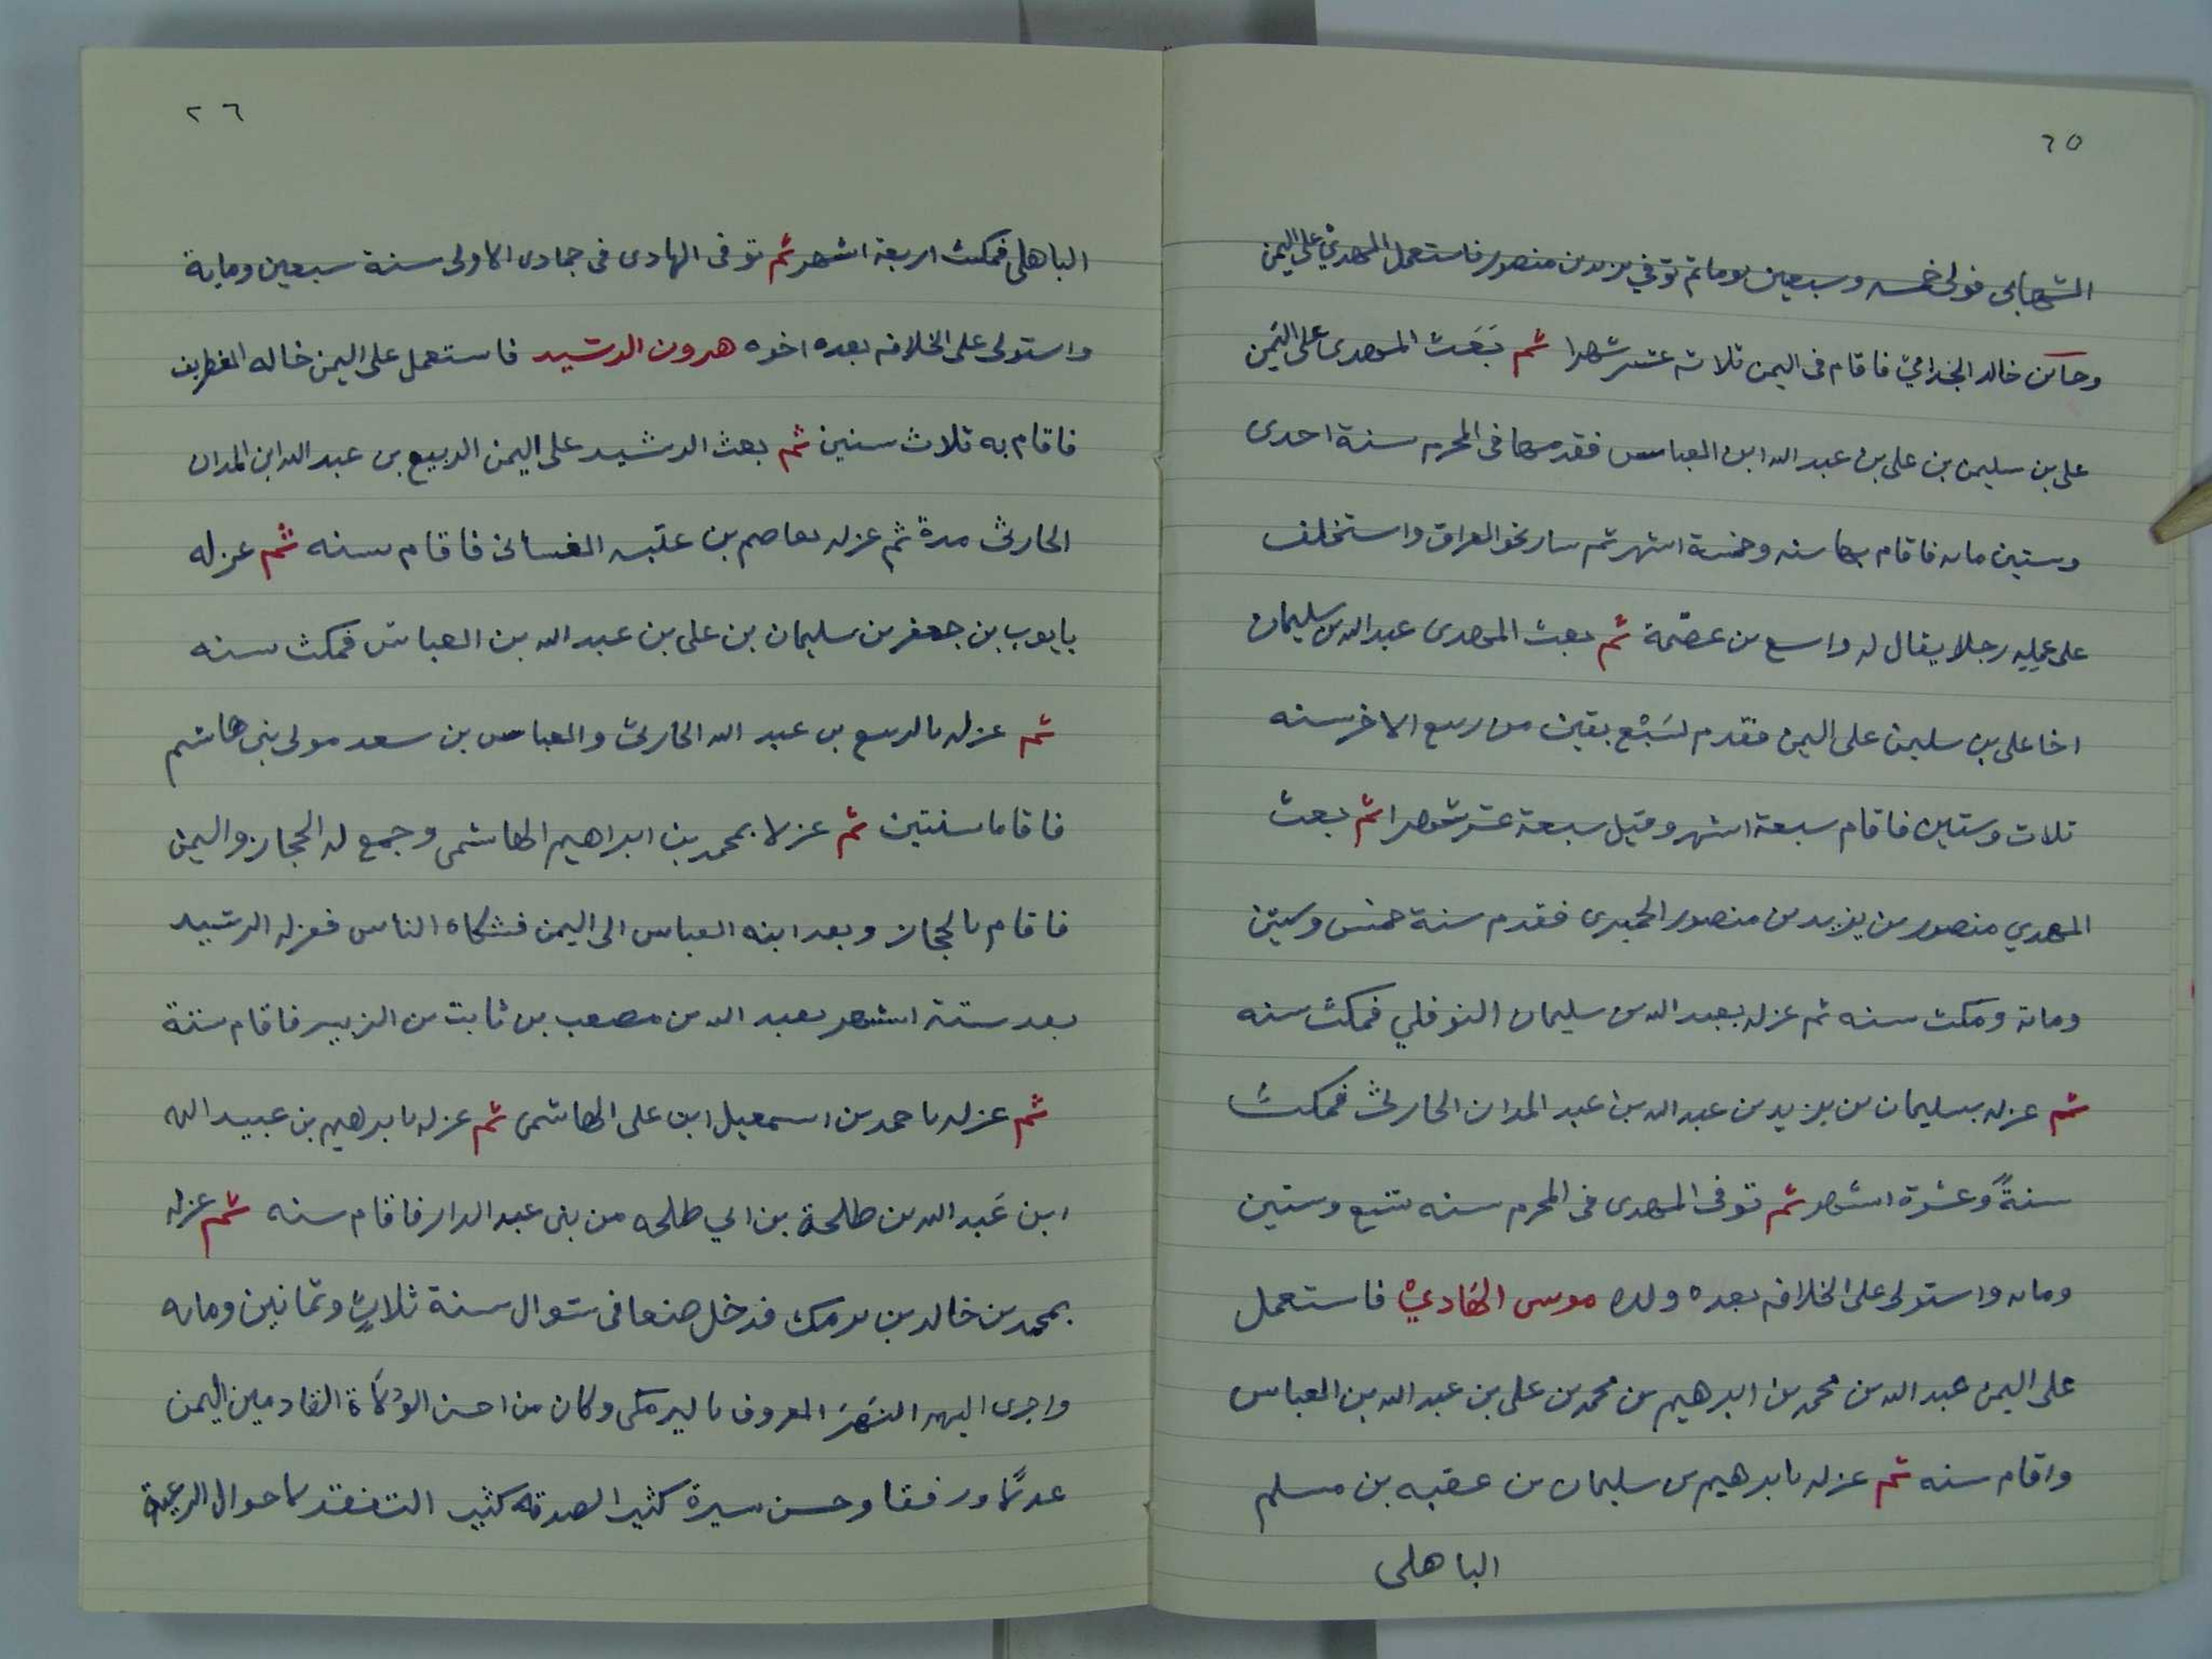 ٢٥
الشهابى فولى خمسه وسبعين يوما ثم توفي يزيد بن منصور فاستعمل المهديّ على اليمن
خالد الجذاميّ فاقام فى اليمن ثلاثه عشر شهرا ثم بَعَث المهدى على اليَمن
على بن سليمن بن على بن عبد الله ابن العباس فقدمها فى المحرم سنة احدى
وستين مايه فاقام بها سنه وخمسة اشهر ثم سار نحو العراق واستخلف
على عمليه رجلا يقال له واسع بن عصمة ثم بعث المهدى عبد الله بن سليمان
اخا على بن سليمن على اليمن فقدم لسَبْع بقين من ربيع الاخر سنه
ثلاث وستين فاقام سبعة اشهر وقيل سبعة عشر شهرا ثم بعث
المهدي منصور بن يزيد بن منصور الحميرى فقدم سنة خمس وستين
ومائة ومكث سنه ثم عزله بعبد الله بن سليمان النوفلي فمكث سنه
ثم عزله بسليمان بن يزيد بن عبد الله بن عبد المدان الحارثى فمكث
سنةً وعشرة اشهر ثم توفى المهدى فى المحرم سنه تسع وستين
ومايه واستولى على الخلافه بعده ولده موسى الهَاديْ فاستعمل
على اليمن عبد الله بن محمد بن ابرهيم بن محمد بن على بن عبد الله بن العباس
واقام سنه ثم عزله بابرهيم بن سليمان بن عقبه بن مسلم
الباهلى
٢٦
الباهلى فمكث اربعة اشهر ثم توفى الهادى فى جمادى الاولى سنة سبعين وماية
واستولى على الخلافه بعده اخوه هرون الرشيد فاستعمل على اليمن خاله الغطريف
فاقام به ثلاث سنين ثم بعث الرشيد على اليمن الربيع بن عبد الله ابن المدان
الحارثى مدة ثم عزله بعاصم بن عتبه الغسانى فاقام سنه ثم عزله
بايوب بن جعفر بن سليمان بن على بن عبد الله بن العباس فمكث سنه
ثم عزله بالربيع بن عبد الله الحارثى والعباس بن سعد مولى بنى هاشم
فاقاما سنتين ثم عزلا بمحمد بن ابراهيم الهاشمى وجمع له الحجاز واليمن
فاقام بالحجاز وبعد ابنه العباس الى اليمن فشكاه الناس فعزله الرشيد
بعد ستة اشهر بعبد الله بن مصعب بن ثابت بن الزبير فاقام سنة
ثم عزله باحمد بن اسمعيل ابن على الهاشمى ثم عزله بابرهيم بن عبيد الله
ابن عَبد الله بن طلحة بن ابي طلحه من بنى عبد الدار فاقام سنه ثم عزله
بمحمد بن خالد بن برمك فدخل صنعا فى شوال سنة ثلاثٍ وثمانين ومايه
واجرى اليهم النَهرَ المعروف بالبرمكى وكان من احسن الوُلَاة القادمين اليمن
عدلًا ورفقا وحسن سيرة كثير الصدقه كثير التفقد لاحوال الرعية